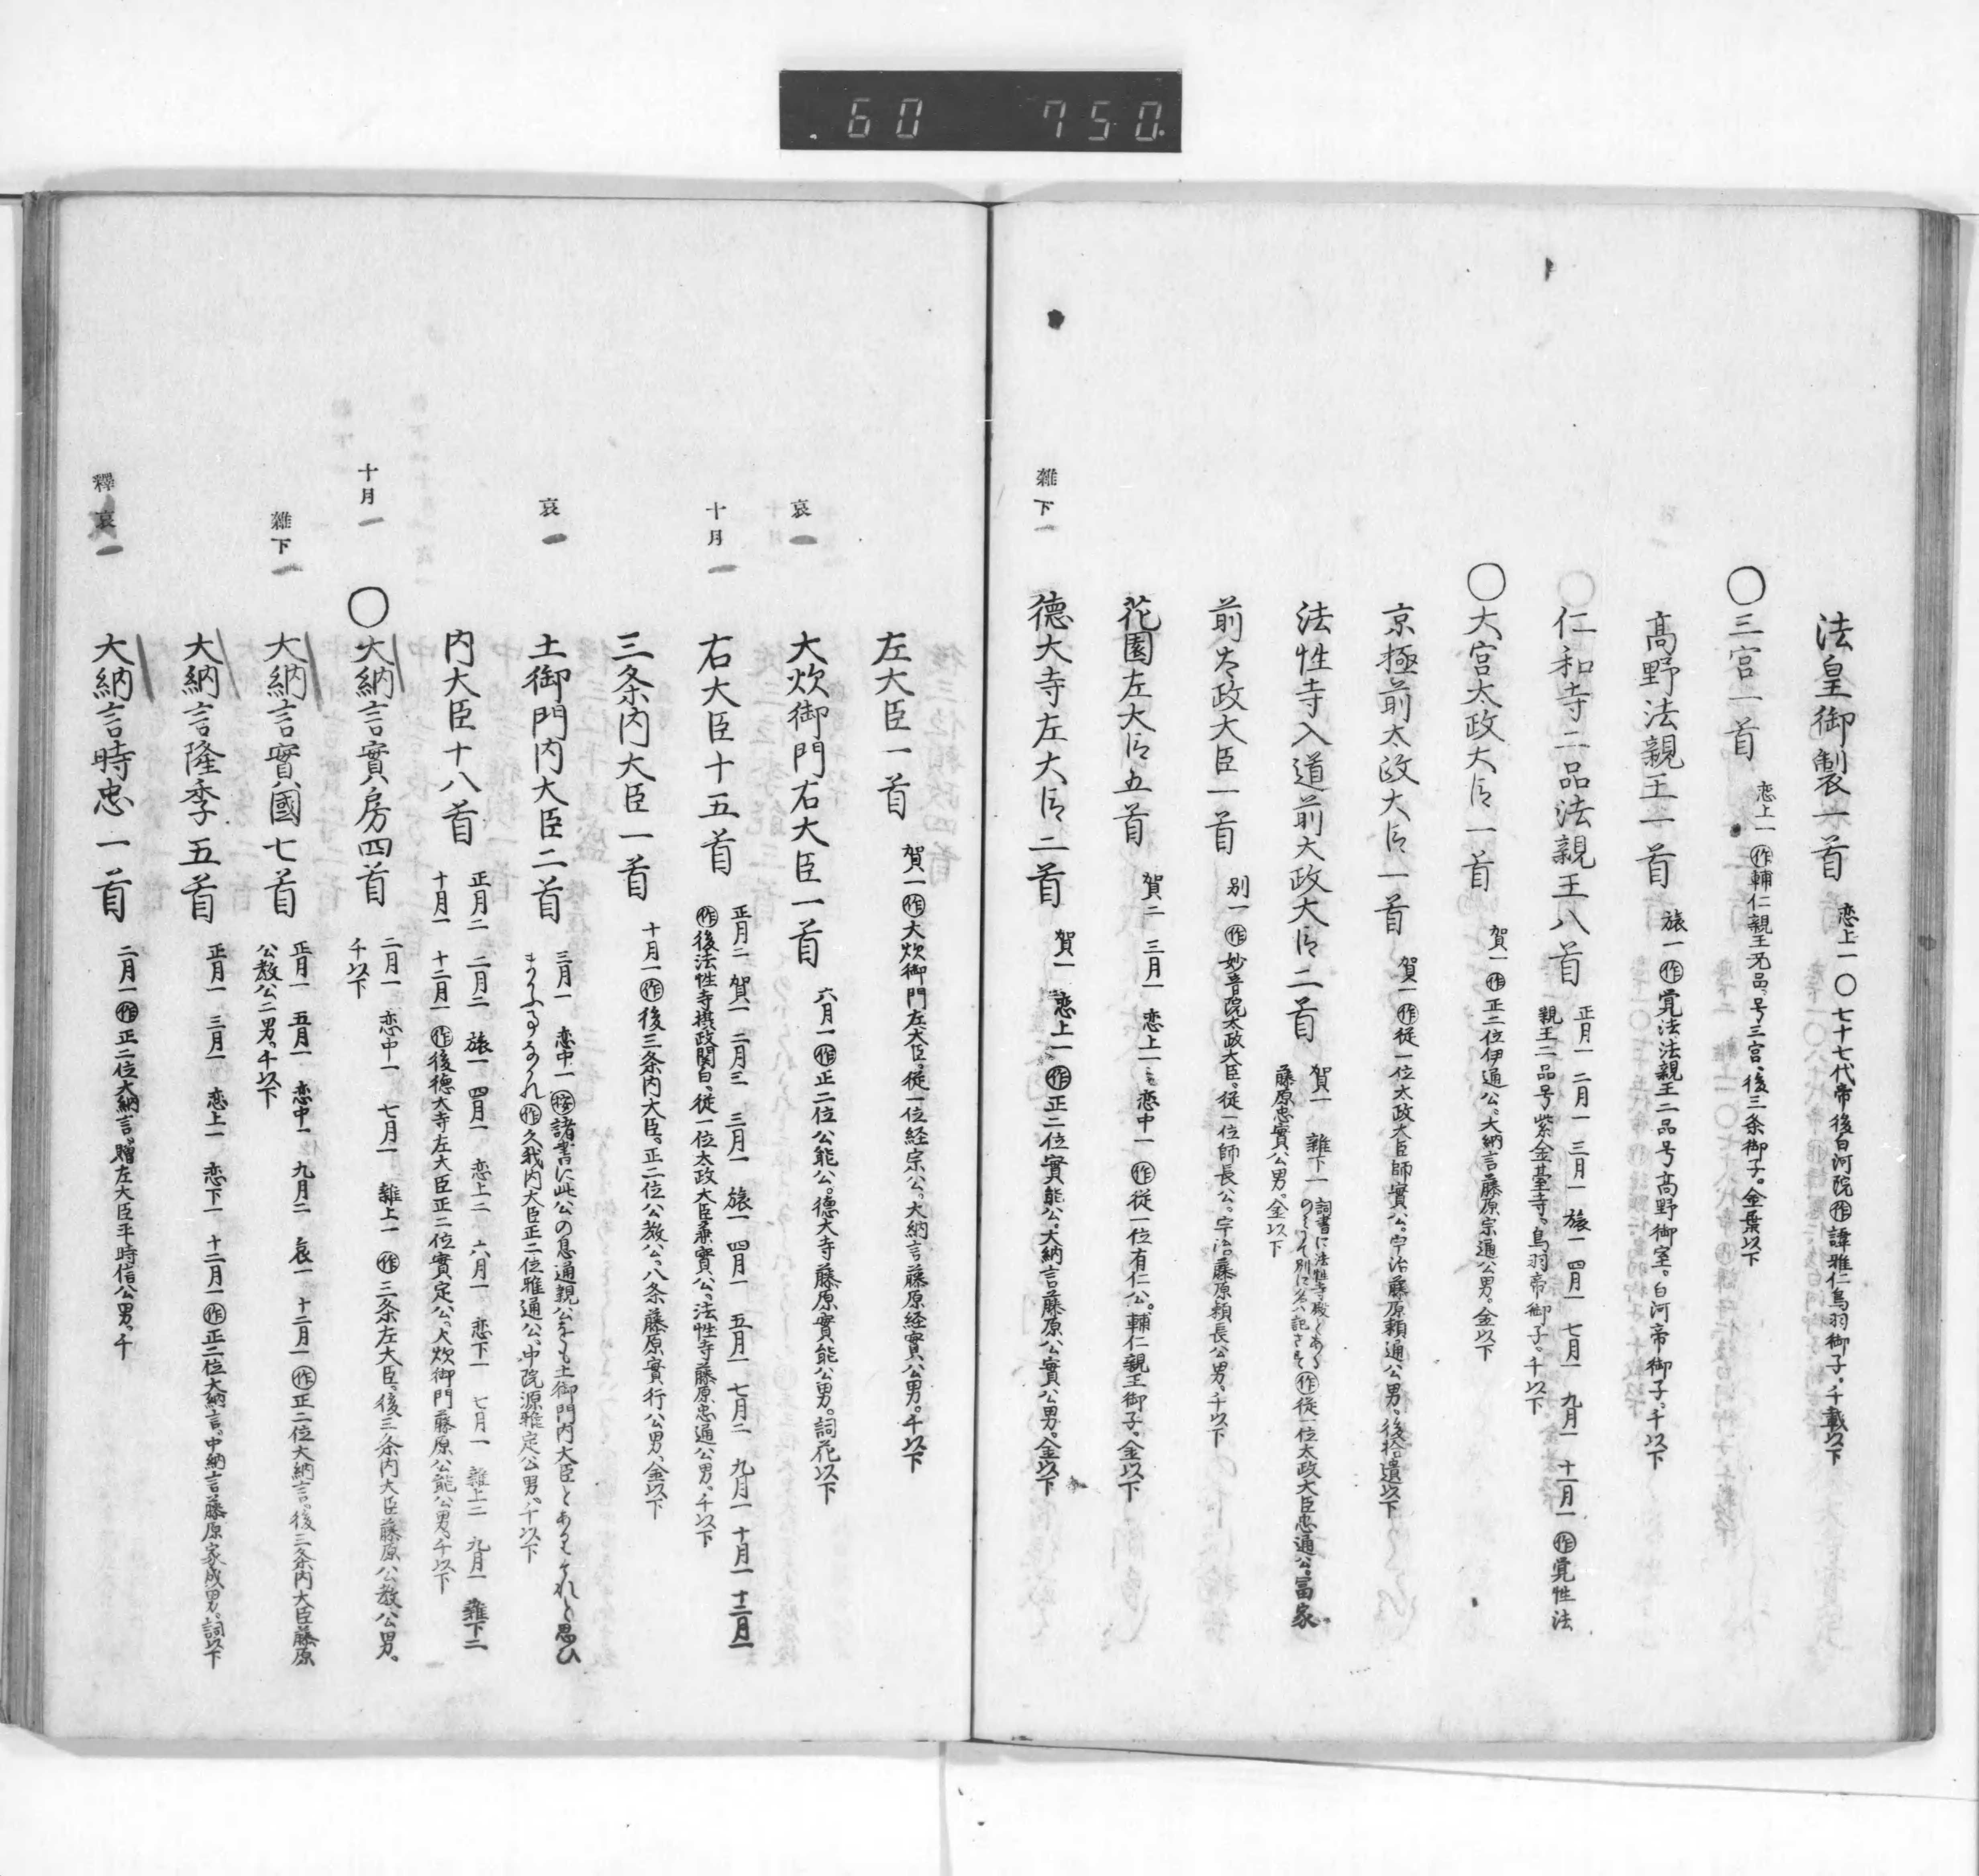 60 750
法皇御製一首
恋上一〇七十七代帝後白河院 作 諱雅仁鳥羽御子。千載以下
〇三宮一首
恋上一 作 輔仁親王无品、号三宮、後三条御子。金葉以下
高野法親王一首
旅一 作 覚法法親王二品号高野御室。白河帝御子。千以下
〇仁和寺二品法親王八首
正月一 二月一 三月一 旅一 四月一 七月一 九月一 十一月一 作 覚性法
親王二品号紫金臺寺。鳥羽帝御子。千以下
〇大宮太政大臣一首
賀一 作 正二位伊通公。大納言藤原宗通公男。金以下
京極前太政大臣一首
賀一 作 従一位太政大臣師實公。宇治藤原頼通公男。後拾遺以下
法性寺入道前大政大臣二首
賀一 雑下一 詞書に法性寺殿とある
作 従一位太政大臣忠通公。富家
藤原忠實公男。金以下
前大政大臣一首
別一 作 妙音院太政大臣。従一位師長公。宇治藤原頼長公男。千以下
花園左大臣五首
賀二 三月一 恋上一 恋中一 作 従一位有仁公。輔仁親王御子。金以下
雑下一
徳大寺左大臣二首
賀一 恋上一 作 正二位實能公。大納言藤原公實公男。金以下
左大臣一首
賀一 作 大炊御門左大臣。従一位経宗公。大納言藤原経實公男。千以下
哀一
大炊御門右大臣一首
六月一 作 正二位公能公。徳大寺藤原實能公男。詞花以下
十月一
右大臣十五首
正月二 賀一 二月三 三月一 旅一 四月一 五月一 七月二 九月一 十月一 十二月一
作 後法性寺摂政関白。従一位太政大臣兼實公。法性寺藤原忠通公男。千以下
三条内大臣一首
十月一 作 後三条内大臣。正二位公教公。八条藤原實行公男。金以下
哀一
土御門内大臣二首
三月一 恋中一 按 諸書に此公の息通親公をも土御門内大臣とあるもそれと思ひ
作 久我内大臣正二位雅通公。中院源雅定公男。千以下
内大臣十八首
正月二 二月二 旅一 四月一 恋上三 六月一 恋下一 七月一 雑上二 九月一 雑下二
十月一 十二月一 作 後徳大寺左大臣正二位實定公。大炊御門藤原公能公男。千以下
十月一
〇大納言實房四首
二月一 恋中一 七月一 雑上一 作 三条左大臣。後三条内大臣藤原公教公男。
千以下
雑下一
大納言實國七首
正月一 五月一 恋中一 九月二 哀一 十二月一 作 正二位大納言。後三条内大臣藤原
公教公二男。千以下
大納言隆季五首
正月一 三月一 恋上一 恋下一 十二月一 作 正二位大納言。中納言藤原家成男。詞以下
釋哀一
大納言時忠一首
二月一 作 正二位大納言。贈左大臣平時信公男。千